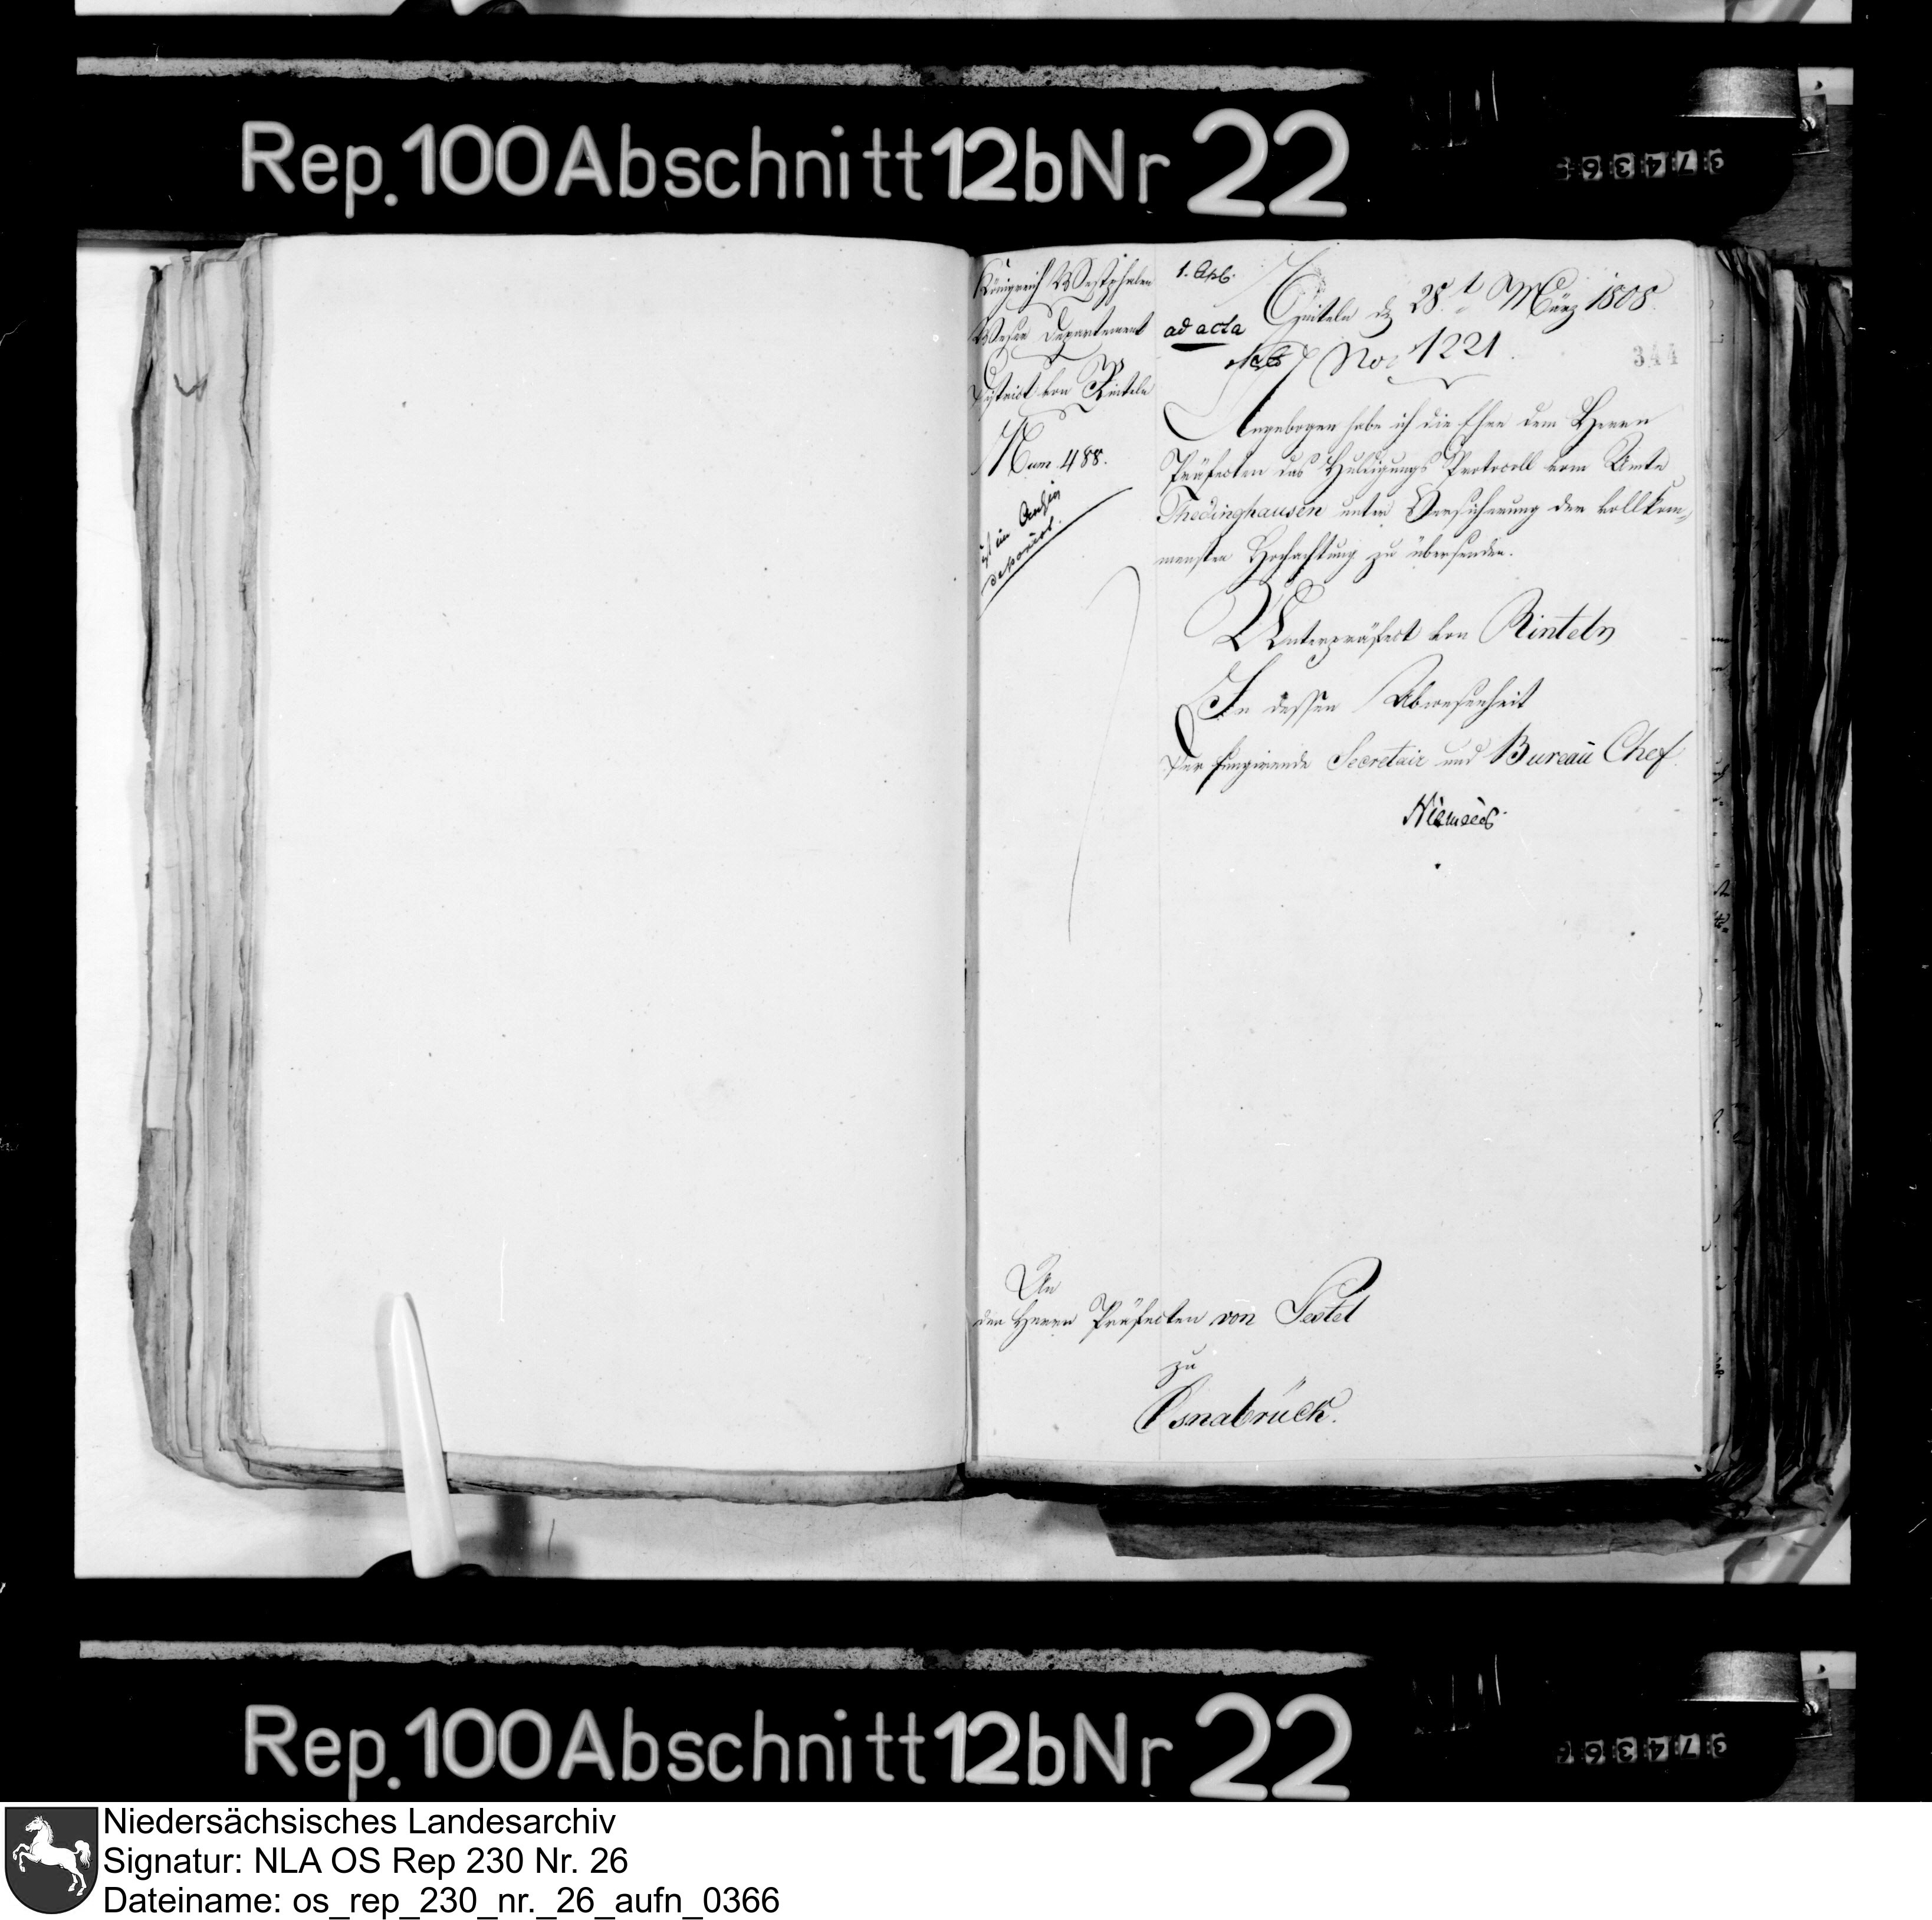 Rep. 100 Abschnitt 12b Nr 22
Königreich Westphalen
Weser Departement
District von Rinteln
Num. 488.
ist im Archiv
deponirt.
1. Apl.
ad acta
Rinteln d. 28t März 1808.
No. 1221
344
Angebogen habe ich die Ehre dem Herrn
Präfecten das Huldigungs Protocoll vom Amte
Thedinghausen unter Versicherung der vollkom-
mensten Hochachtung zu übersenden.
Unterpräfect von Rinteln
In dessen Abwesenheit
Der fungirende Secretair und Bureau Chef.
An
den Herrn Präfecten von Pestel
zu
Osnabrück.
Rep. 100 Abschnitt 12b Nr 22
Niedersächsisches Landesarchiv
Signatur: NLA OS Rep 230 Nr. 26
Dateiname: os_rep_230_nr._26_aufn_0366